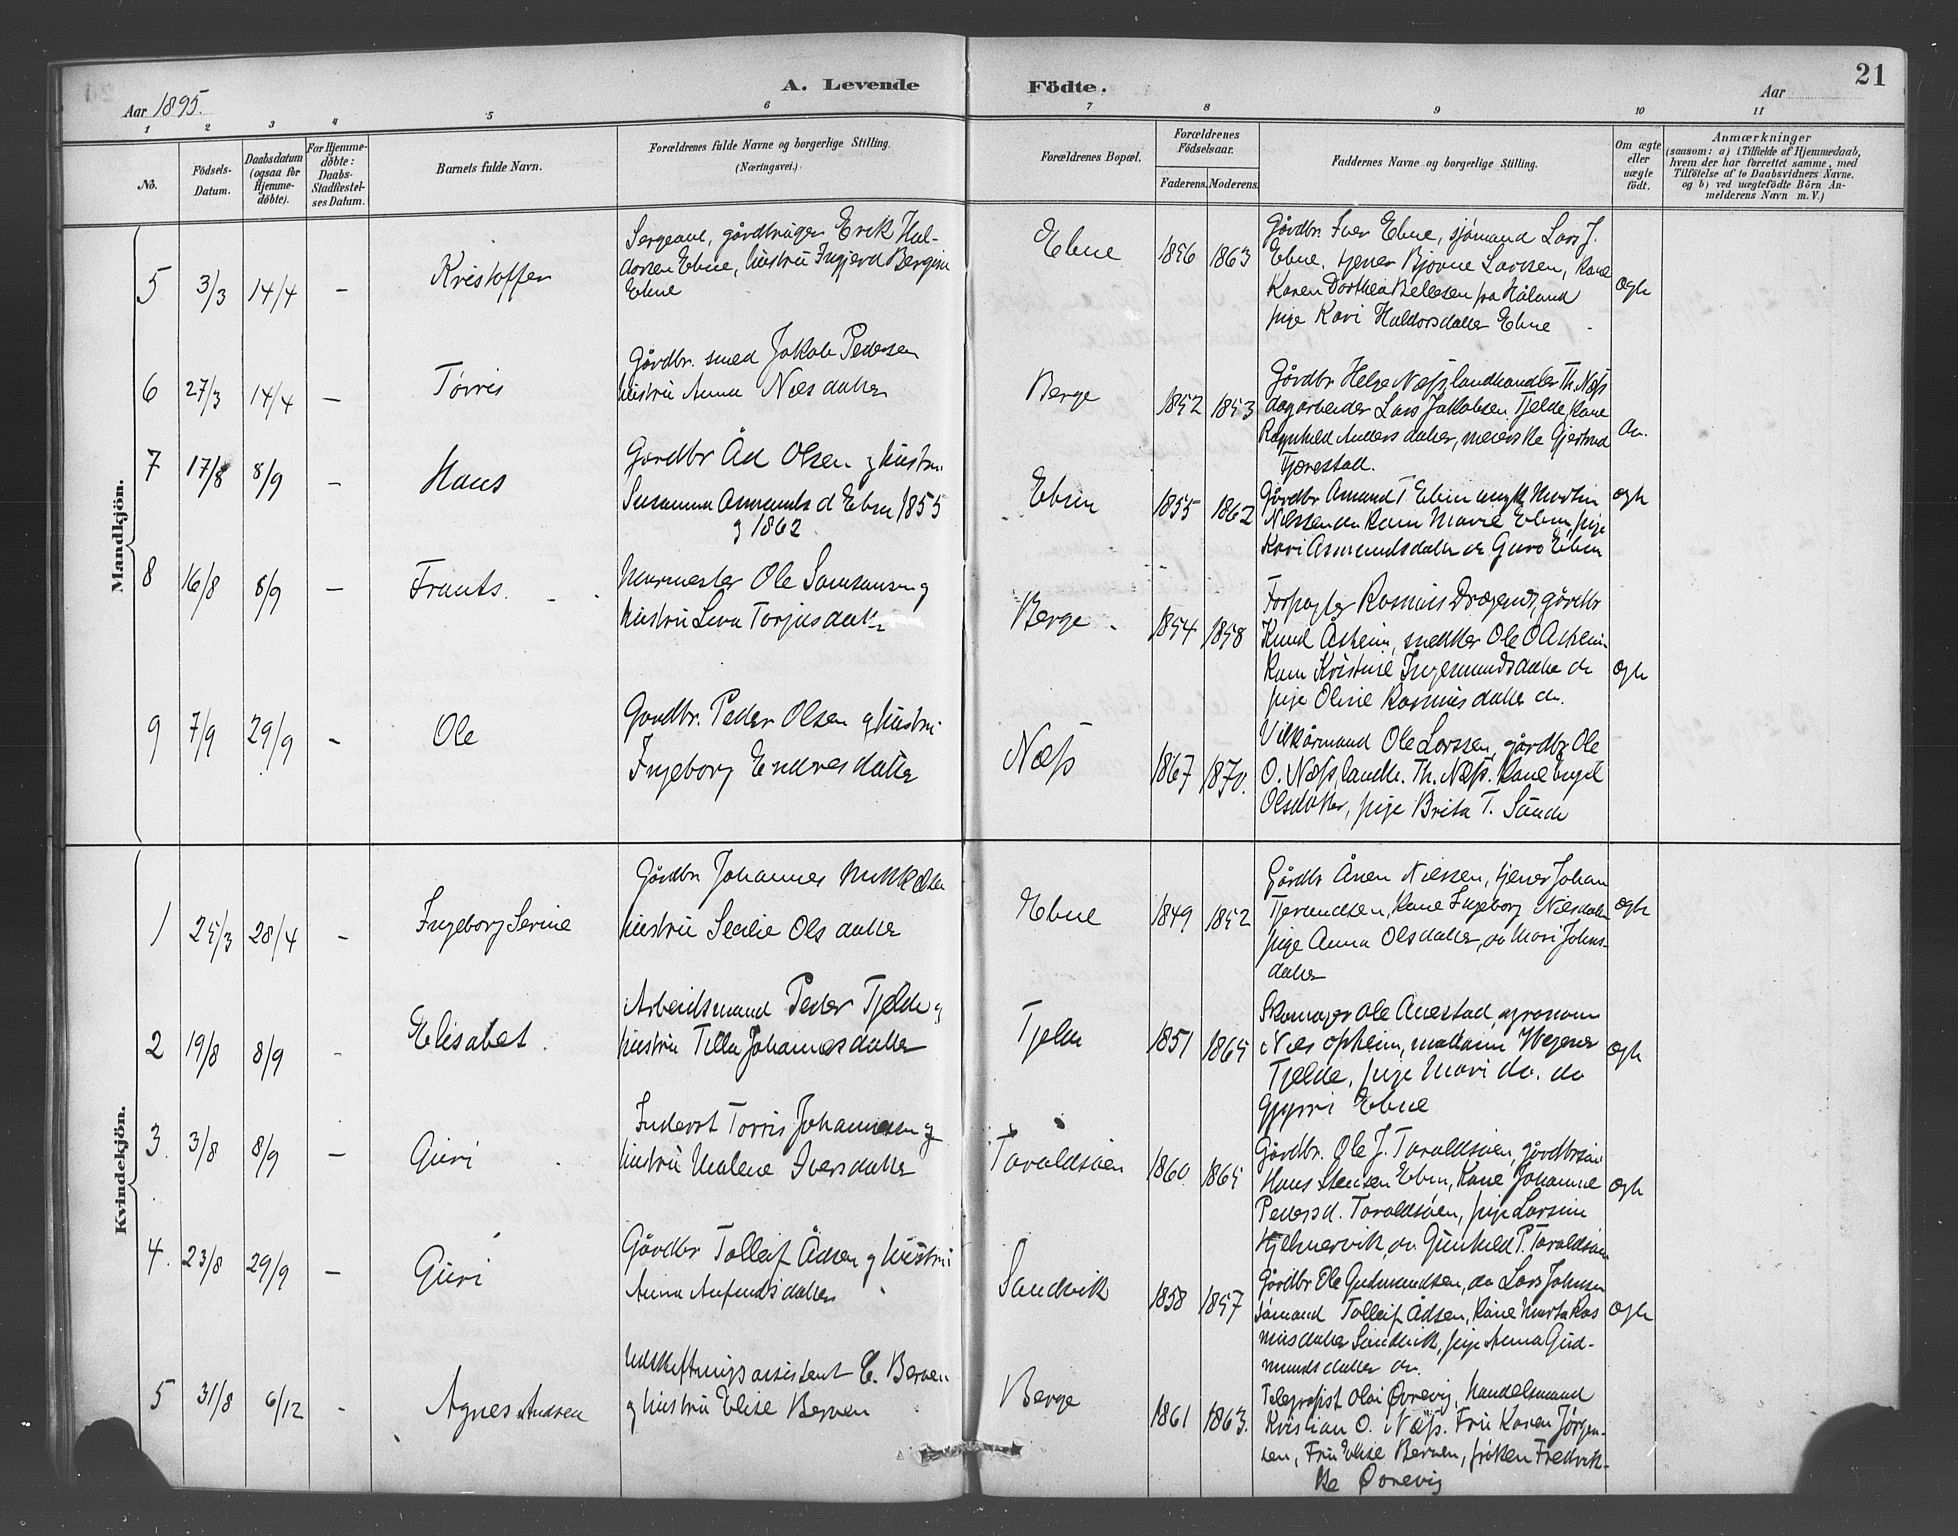 21
A. Levende Födte.
Aar 1895.
Aar
1 2 3 4 5 6 7 8 9 10 11
No.
Födsels-Datum.
Daabsdatum (ogsaa for Hjemme-døbte).
For Hjemme-døbte: Daabs-Stadfæstel-ses Datum.
Barnets fulde Navn.
Forældrenes fulde Navne og borgerlige Stilling.
(Næringsvei.)
Forældrenes Bopæl.
Forældrenes Födselsaar.
Faderens. Moderens.
Faddernes Navne og borgerlige Stilling.
Om ægte eller uægte födt.
Anmærkninger
(saasom: a) i Tilfælde af Hjemmedaab, hvem der har forrettet samme, med Tilföielse af to Daabsvidners Navne, og b) ved uægtefödte Börn An-melderens Navn m. V.)
Mandkjön.
5 3/3 14/4 – Kristoffer
Sergeant, gårdbruger Erik Hal-
dorsen Ebne, hustru Ingjerd Bergine
Ebne
Ebne 1856 1863
Gårdbr. Iver Ebne, sjømand Lars J.
Ebne, tjener Bjorne Larsen, kone
Karen Dorthea Bellesen fra Håland
pige Kari Haldorsdatter Ebne
ægte
6 27/3 14/4 – Tørris
Gårdbr. smed Jakob Pedersen
hustru Anna Nilsdatter
Berge 1852 1853
Gårdbr Helge Næss, landhandler Th. Næss
dagarbeider Lars Jakobsen Tjelde, kone
Ragnhild Andersdatter, meierske Gjertrud
Tjærestad.
do.
7 17/8 8/9 – Hans
Gårdbr Åd Olsen og hustru
Susanna Asmunds d Ebne 1855
og 1862
Ebne 1855 1862
Gårdbr Amund T Ebne ungk Martin
Nilssen do kone Marie Ebne, pige
Kari Asmundsdatter do Guro Ebne
ægte
8 16/8 8/9 – Frants.
Murmester Ole Samsonsen og
hustru Lava Torjusdatter
Berge 1854 1858
Forpagter Rasmus Dragesd, gårdbr
Knud Askeim, snekker Ole O Askeim
kone Kristine Ingemundsdatter do
pige Oline Rasmusdatter do.
ægte
9 7/9 29/9 – Ole
Gårdbr. Peder Olsen og hustru
Ingeborg Endresdatter
Næss 1867 1870.
Vilkårmand Ole Larssen, gårdbr Ole
O. Næss, landh. Th. Næss. kone Engel
Olsdatter, pige Brita T. Sunde
Kvindekjön.
1 25/3 28/4 – Ingeborg Serine
Gårdbr Johannes
hustru Secilie Olsdatter
Ebne 1849 1852
Gårdbr Ånen Nilssen, tjener Johan
Tjerandsen, kone Ingeborg Nilsdatter
pige Anna Olsdatter, do Mari Johns-
datter
ægte
2 19/8 8/9 - Elisabet.
Arbeidsmand Peder Tjelde og
hustru Tilla Johannesdatter
Tjelde 1851 1865
Skomager Ole Anestad, agronom
Nils Opheim, madam Wegner
Tjelde, pige Mari do. do
Gjyrri Ebne
ægte
3. 3/8 8/9 – Guri
Inderst Torris Johannessen og
hustru Malene Iversdatter
Taraldsøen 1860 1865
Gårdbr. Ole J. Taraldsøen, gårdbrsøn
Hans Stensen Ebne, kone Johanne
Pedersd. Taraldsøen, pige Larsine
Hjelmervik, do. Gunhild P. Taraldsøen
ægte
4. 23/8 29/9 – Guri
Gårdbr Tolleif Ådsen og hustru
Anna Anfindsdatter
Sandvik 1858 1857
Gårdbr Ole Gudmundsen, do Lars Johnsen
sømand Tolleif Ådsen, kone Marta Ras
musdatter Sandvik, pige Anna Gud-
mundsdatter do.
ægte
5 31/8 6/12 - Agnes Andrea
Udskiftningsassistent E. Berven
og hustru Elise Berven
Berge 1861 1863.
Telegrafist Olai Øvrevig, handelsmand
Kristian O. Næss. Fru Karen Jørgen-
sen, Fru Elise Berven, frøken Fredrik-
ke Øvrevig